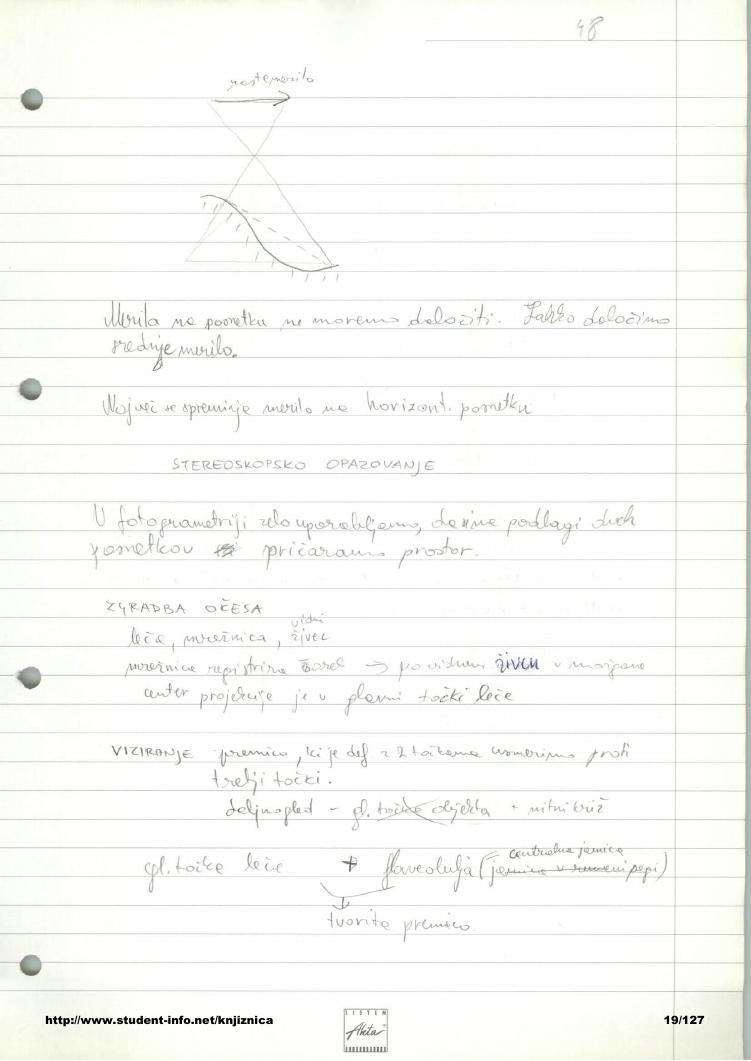 48
raste merilo
Merila na posnetku ne moremo določiti. Lahko določimo
srednje merilo.
Najveć se spreminja merilo na horizont. posnetku
STEREOSKOPSKO OPAZOVANJE
V fotogrametriji zelo uporabljamo, da si na podlagi dveh
posnetkov pričaramo prostor.
ZGRADBA OČESA
vidni
leča, mrežnica, živec
mrežnica registrira žarek → po vidnem živcu v možgane
center projekcije je v glavni točki leče
VIZIRANJE premico, ki je def z 2 točkama usmerimo proti
tretji točki.
daljnogled - gl. točka objekta + nitni križ
centralna jamica
gl. točka leče + (jamica v rumeni pegi)
tvorita premico.
http://www.student-info.net/knjiznica
SISTEM
Akta
19/127